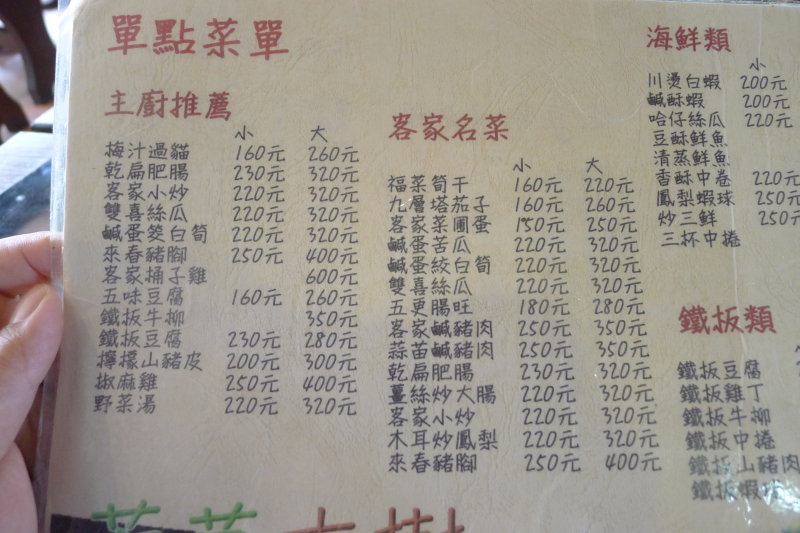 單點菜單
主廚推薦
小 大
梅汁過貓 160元 260元
乾扁肥腸 230元 320元
客家小炒 220元 320元
雙喜絲瓜 220元 320元
鹹蛋筊白筍 220元 320元
來春豬腳 250元 400元
客家捅子雞 600元
五味豆腐 160元 260元
鐵板牛柳 350元
鐵板豆腐 230元 280元
檸檬山豬皮 200元 300元
椒麻雞 250元 400元
野菜湯 220元 320元
客家名菜
小 大
福菜筍干 160元 220元
九層塔茄子 160元 260元
客家菜圃蛋 150元 250元
鹹蛋苦瓜 220元 320元
鹹蛋絞白筍 220元 320元
雙喜絲瓜 220元 320元
五更腸旺 180元 280元
客家鹹豬肉 250元 350元
蒜苗鹹豬肉 250元 350元
乾扁肥腸 230元 320元
薑絲炒大腸 220元 320元
客家小炒 220元 320元
木耳炒鳳梨 220元 320元
來春豬腳 250元 400元
海鮮類
小
川燙白蝦 200元
鹹酥蝦 200元
哈仔絲瓜 220元
豆酥鮮魚
清蒸鮮魚
香酥中卷 220元
鳳梨蝦球 250元
炒三鮮 250元
三杯中捲
鐵板類
鐵板豆腐
鐵板雞丁
鐵板牛柳
鐵板中捲
鐵板山豬肉
鐵板蝦球